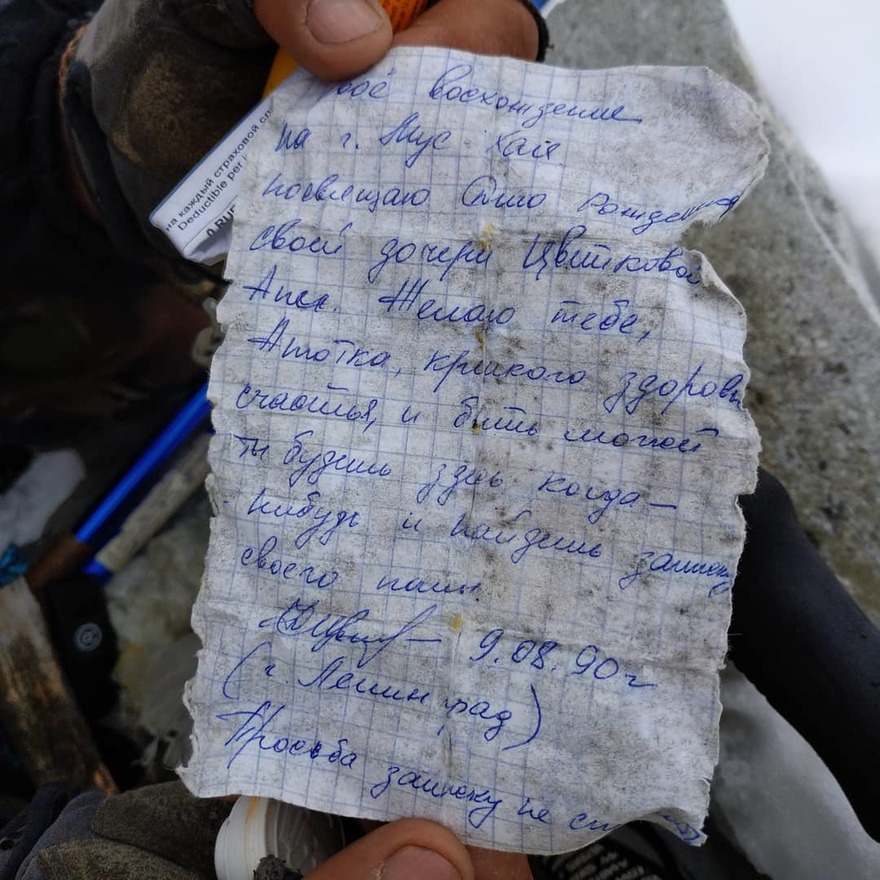 восхождение
на г. Мус Хая
посвящаю Дню Рождения
своей дочери Цветковой
Желаю тебе,
крепкого здоровья
счастья, и быть может
ты будешь здесь когда-
нибудь и найдешь записку
своего папы.
9.08.90г
(г. Ленинград)
Просьба записку не
на каждый страховой сл
Deductible per